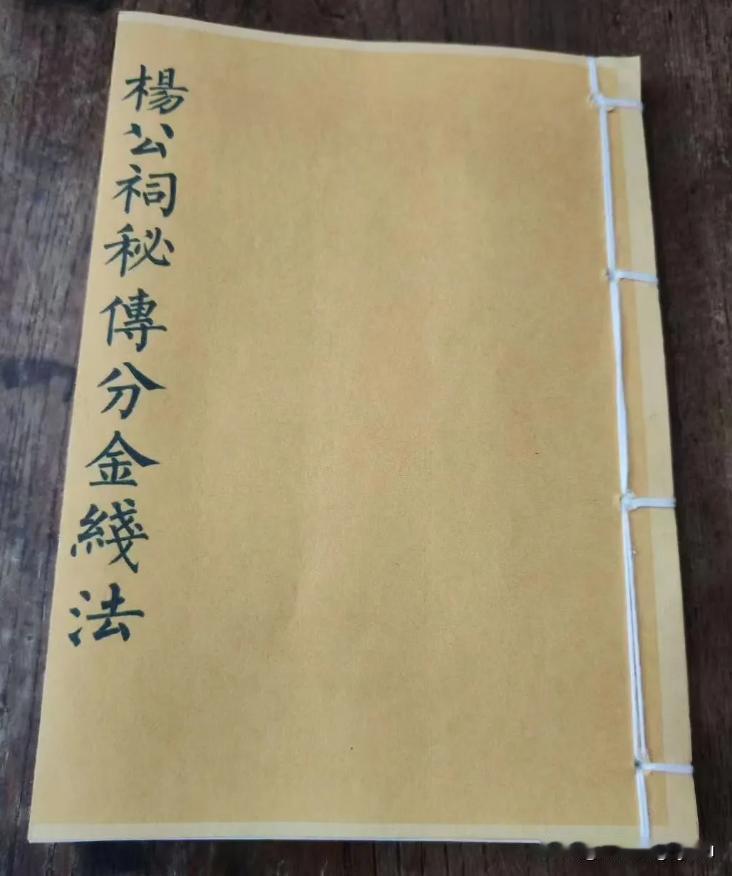 楊公祠秘傳分金綫法